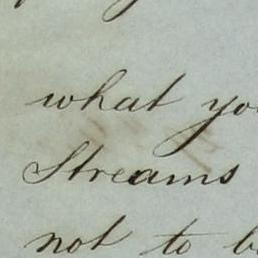 what yo
Streams
not to b